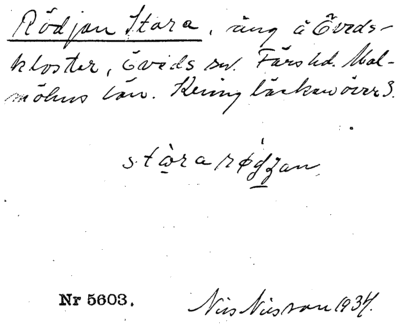 Rödjan Stora, äng å Öveds-
kloster, Öveds sn. Färs hd. Mal-
möhus län. Kring bäcken över3.
stọra rødʒan
Nr 5603.
Nils Nilsson 1934.